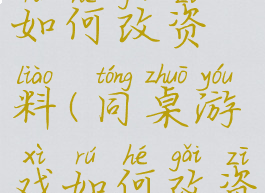 如何改资
liào tóng zhuō yóu
料(同桌游
xì rú hé gǎi zī
戏如何改资